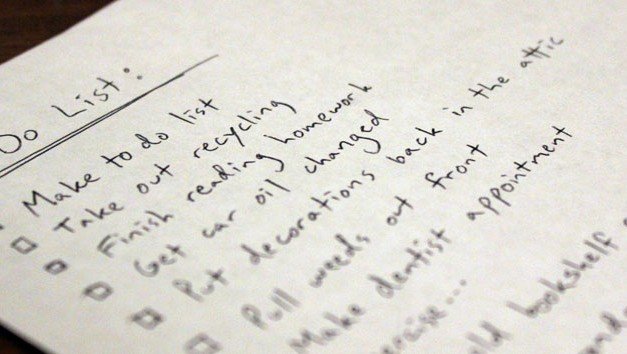 Do List:
Make to do list
Take out recycling
Finish reading homework
Get car oil changed
Put decorations back in the attic
Pull weeds out front
Make dentist appointment
bookshelf